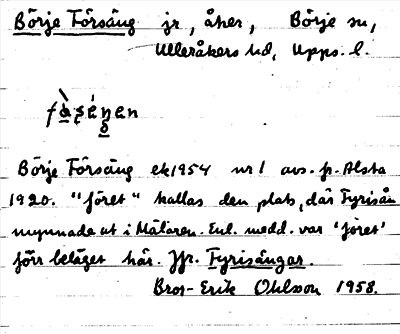 Börje Försäng jr, åker, Börje sn,
Ulleråkers hd, Upps. l.
Börje Försäng ek 1954 nr 1 avs. fr. Alsta
1920. "föret" kallas den plats, där Fyrisån
mynnade ut i Mälaren. Enl. medd. var 'föret'
förr beläget här. Jfr. Fyrisängar.
Bror-Erik Ohlsson 1958.